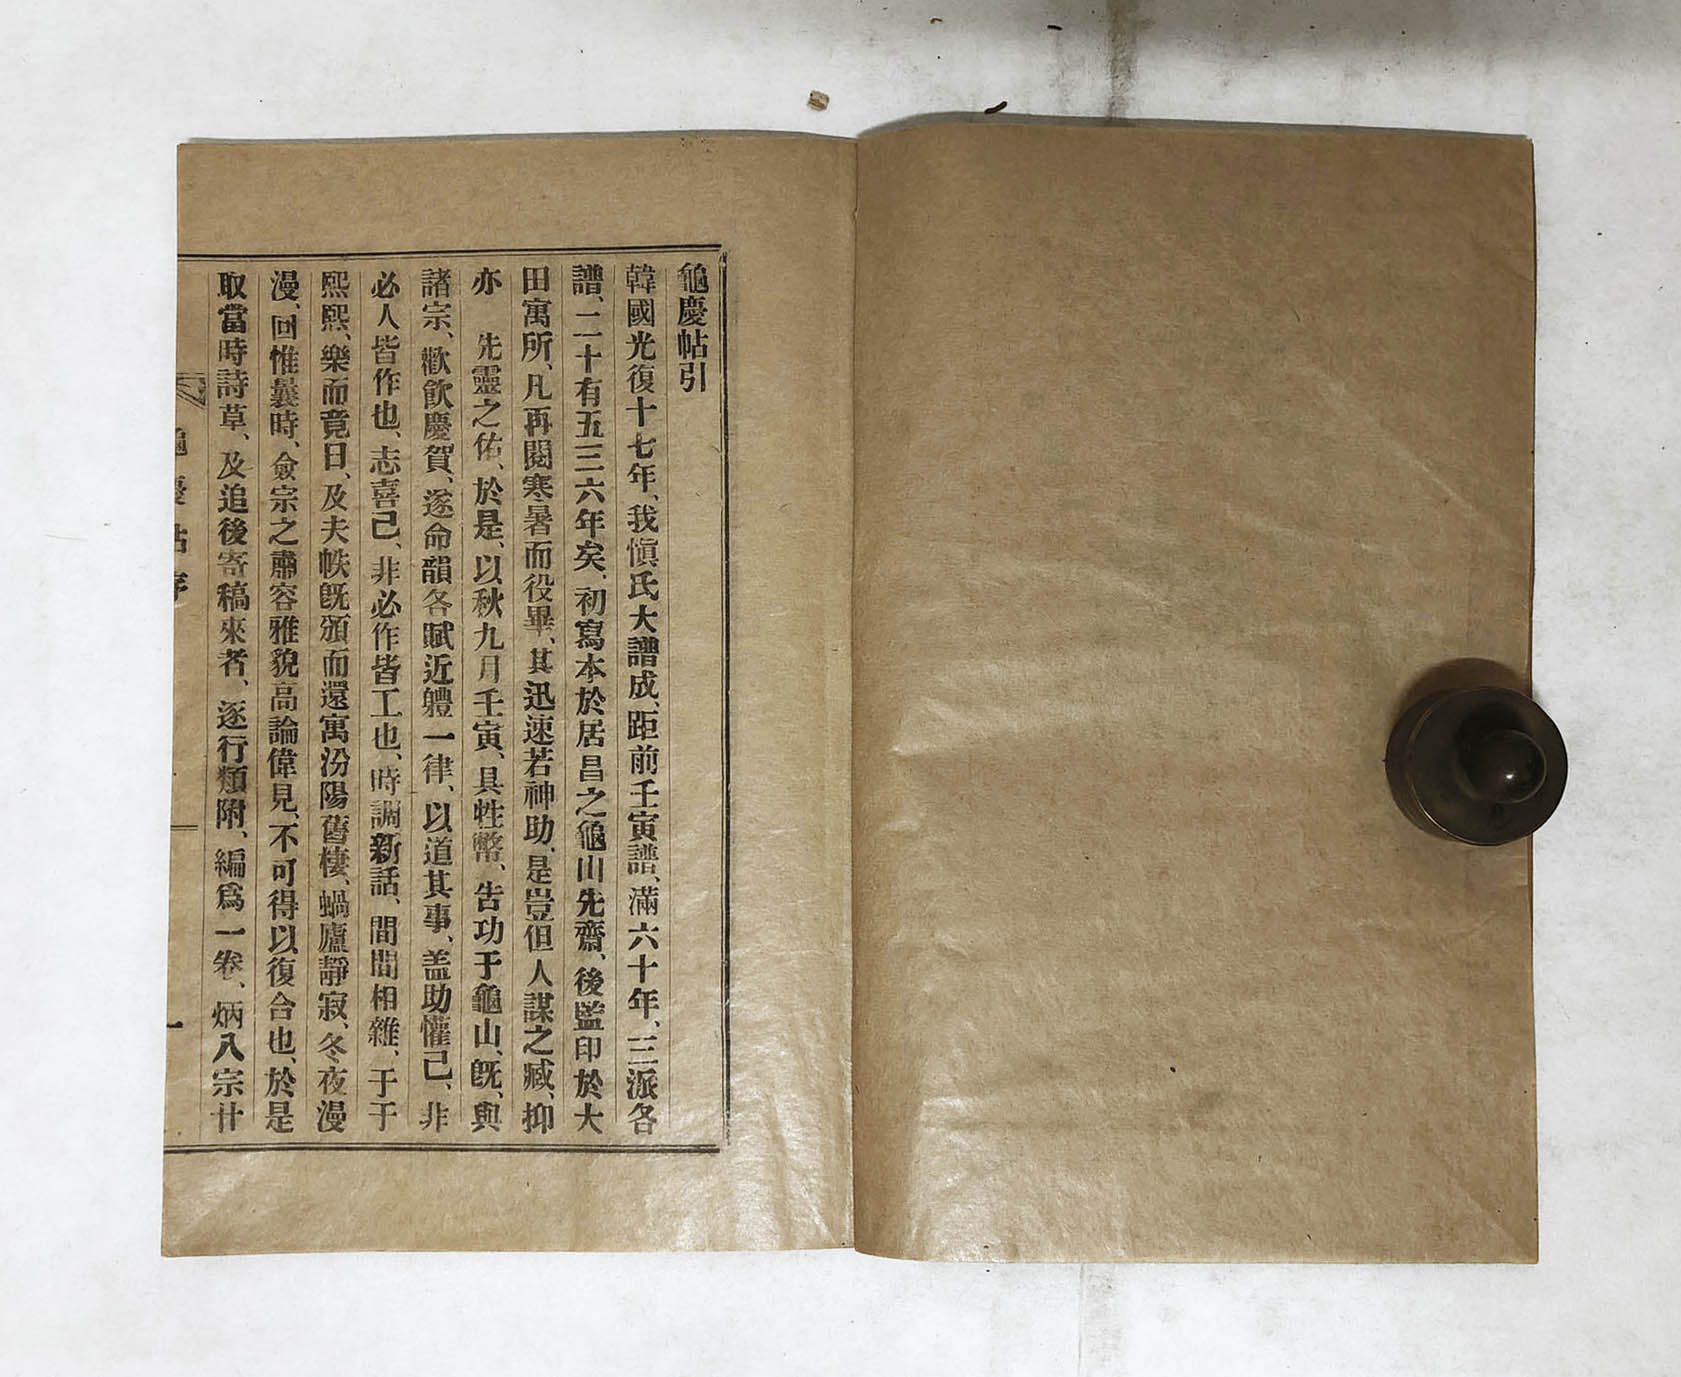 龜慶帖引
韓國光復十七年、我愼氏大譜成、距前壬寅譜、滿六十年、三派各
譜、二十有五三六年矣、初寫本於居昌之龜山先齋、後監印於大
田寓所、凡再閱寒暑而役畢、其迅速若神助、是豈但人謀之臧、抑
亦 先靈之佑、於是、以秋九月壬寅、具牲幣、告功于龜山、旣、與
諸宗、歡飮慶賀、遂命韻各賦近軆一律、以道其事、盖助懽己、非
必人皆作也、志喜己、非必作皆工也、時調新話、間間相雜、于于
熙熙、樂而竟日、及夫帙旣頒而還寓汾陽舊棲、蝸廬靜寂、冬夜漫
漫、回惟曩時、僉宗之肅容雅貌高論偉見、不可得以復合也、於是
取當時詩草、及追後寄稿來者、逐行類附、編爲一卷、炳八宗廿
龜慶帖序
一